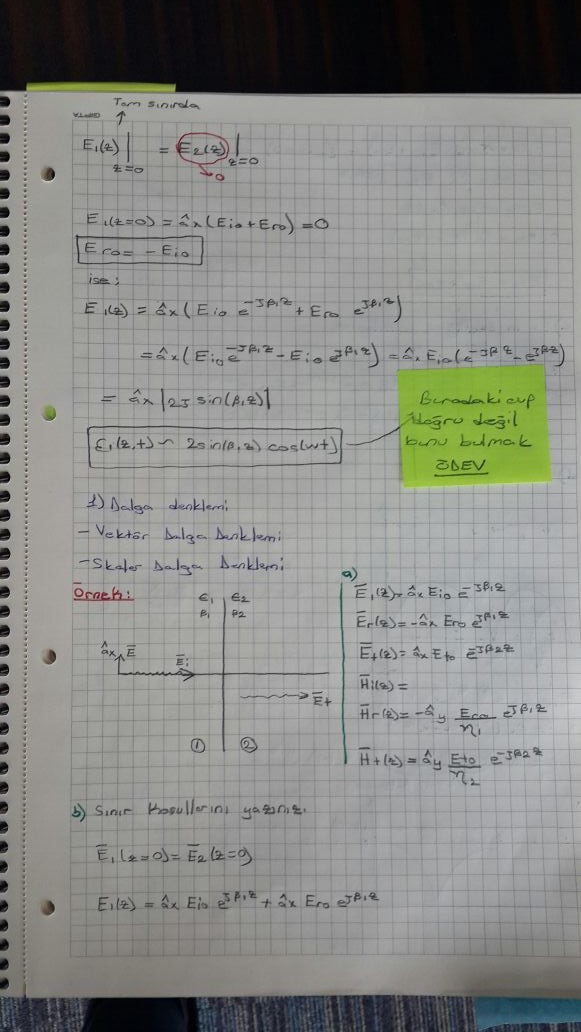 Tam sınırda
E₁(z)|z=0 = E₂(z)|z=0
→0
E₁(z=0) = âx(Eio+Ero) = 0
Ero = -Eio
ise:
E₁(z) = âx(Eio e^-Jβ₁z + Ero e^Jβ₁z)
= âx(Eio e^-Jβ₁z - Eio e^Jβ₁z) = âx Eio(e^-Jβz - e^Jβz)
= âx |2J sin(β₁z)|
E₁(z,t) ~ 2sin(β₁z) cos(wt)
Buradaki cvp
doğru değil
bunu bulmak
ÖDEV
1) Dalga denklemi
- Vektör Dalga Denklemi
- Skaler Dalga Denklemi
Örnek:
ϵ₁ ϵ₂
β₁ β₂
âx Ē
Ēi
Ēt
① ②
a)
Ē₁(z) = âx Eio e^-Jβ₁z
Ēr(z) = -âx Ero e^Jβ₁z
Ēt(z) = âx Eto e^-Jβ2z
H̄i(z) =
H̄r(z) = -ây Ero/η₁ e^Jβ₁z
H̄t(z) = ây Eto/η₂ e^-Jβ2z
b) Sınır Koşullarını yazınız.
Ē₁(z=0) = Ē₂(z=0)
E₁(z) = âx Eio e^Jβ₁z + âx Ero e^Jβ₁z